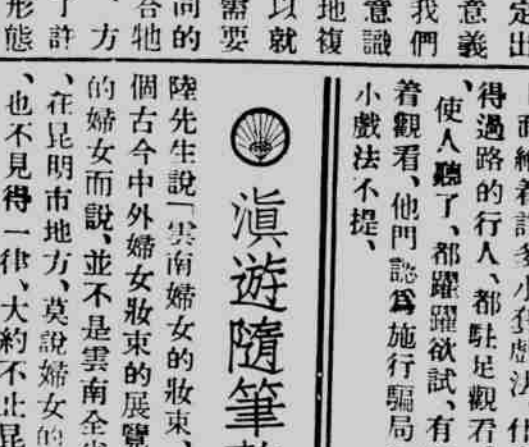 定出
意義
我們
意識
地複
以就
需要
同的
合牠
方
了許
形態
得過路的行人、都駐足觀看
使人聽了、都躍躍欲試、有
着觀看、他門認爲施行騙局
小戲法不提、
滇遊隨筆
陸先生說「雲南婦女的妝束、
個古今中外婦女妝束的展覽
的婦女而說、並不是雲南全省
、在昆明市地方、莫說婦女的
、也不見得一律、大約不止昆